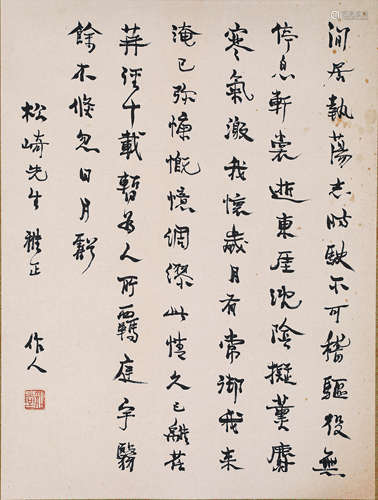 閒居執蕩志時駛不可稽驅役無
停息軒裳逝東崖沈陰擬薰麝
寒氣激我懷歲月有常御我來
淹已弥慷慨憶綢繆此情久已離荏
苒經十載暫為人所羈庭宇翳
餘木倏忽日月虧
松崎先生雅正
作人